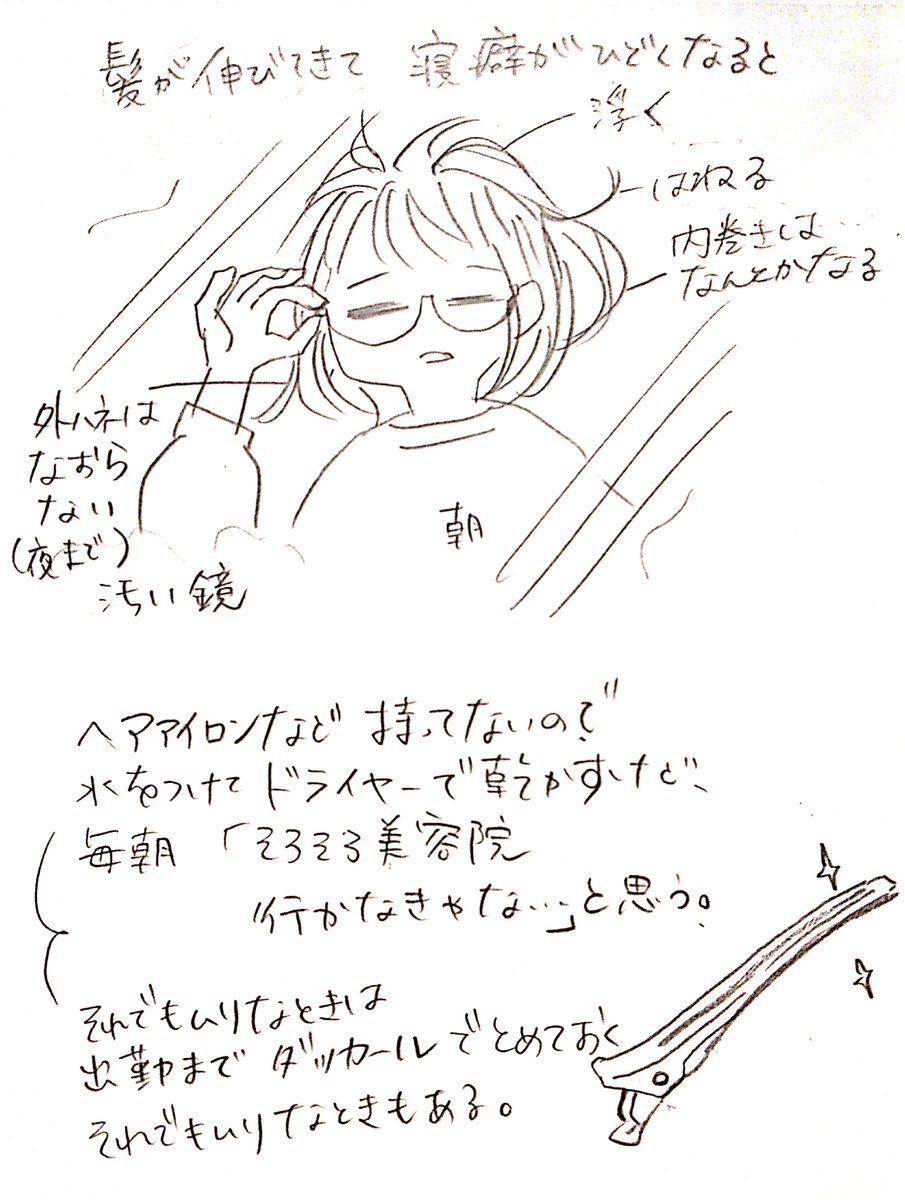 髪が伸びてきて 寝癖がひどくなると
浮く
はねる
内巻きは…
なんとかなる
外ハネは
なおら
ない
(夜まで)
朝
汚い鏡
ヘアアイロンなど 持ってないので
水をつけて ドライヤーで乾かすけど、
毎朝 「そろそろ美容院
行かなきゃな…」と思う。
それでもムリなときは
出勤まで ダッカールでとめておく
それでもムリなときもある。